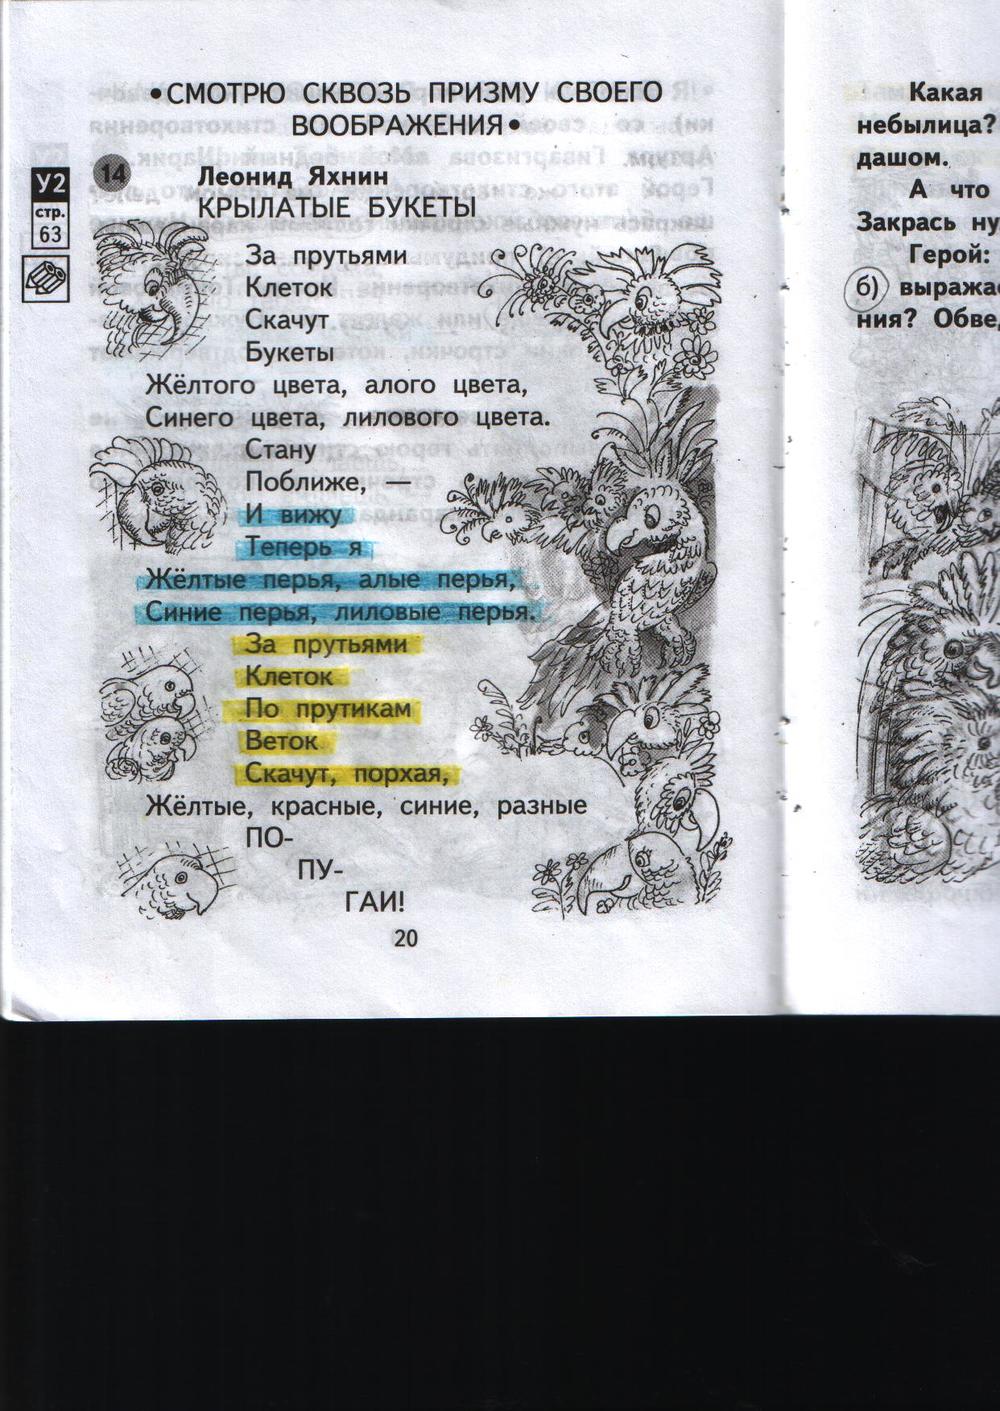 •СМОТРЮ СКВОЗЬ ПРИЗМУ СВОЕГО
ВООБРАЖЕНИЯ•
14
У2
стр.
63
Леонид Яхнин
КРЫЛАТЫЕ БУКЕТЫ
За прутьями
Клеток
Скачут
Букеты
Жёлтого цвета, алого цвета,
Синего цвета, лилового цвета.
Стану
Поближе, —
И вижу
Теперь я
Жёлтые перья, алые перья,
Синие перья, лиловые перья.
За прутьями
Клеток
По прутикам
Веток
Скачут, порхая,
Жёлтые, красные, синие, разные
ПО-
ПУ-
ГАИ!
20
Какая
небылица?
дашом.
А что
Закрась ну
Герой:
б) выража
ния? Обве